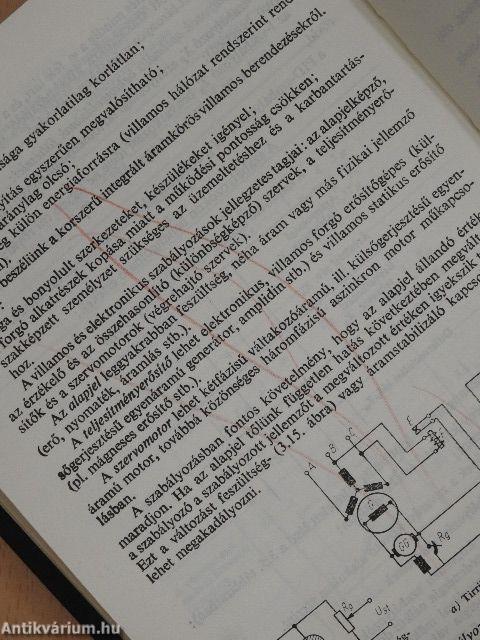 sága gyakorlatilag korlátlan;
yítás egyszerűen megvalósítható;
aránylag olcsó;
g külön energiaforrásra (villamos hálózat rendszerint rend
beszélünk a korszerű integrált áramkörös villamos berendezésekről.
ga és bonyolult szerkezeteket, készülékeket igényel;
forgó alkatrészek kopása miatt a működési pontosság csökken;
szakképzett személyzet szükséges az üzemeltetéshez és a karbantartás-
hoz.
A villamos és elektronikus szabályozások jellegzetes tagjai: az alapjelképző,
az érzékelő és az összehasonlító (különbségképző) szervek, a teljesítményerő-
sítők és a szervomotorok (végrehajtó szervek).
Az alapjel leggyakrabban feszültség, néha áram vagy más fizikai jellemző
(erő, nyomaték, áramlás stb.).
A teljesítményerősítő lehet elektronikus, villamos forgó erősítőgépes (kül-
sőgerjesztésű egyenáramú generátor, amplidin stb.) és villamos statikus erősítő
(pl. mágneses erősítő stb.).
A szervomotor lehet kétfázisú váltakozóáramú, ill. külsőgerjesztésű egyen-
áramú motor, továbbá közönséges háromfázisú aszinkron motor műkapcso-
lásban.
A szabályozásban fontos követelmény, hogy az alapjel állandó érték
maradjon. Ha az alapjel tőlünk független hatás következtében megvált
a szabályozó a szabályozott jellemzőt a megváltozott értéken igyekszik t
Ezt a változást feszültség- (3.15. ábra) vagy áramstabilizáló kapcso
lehet megakadályozni.
A
B
C
G
GG
Rg
Rg
Ust
a) Tirri
Antikvárium.hu